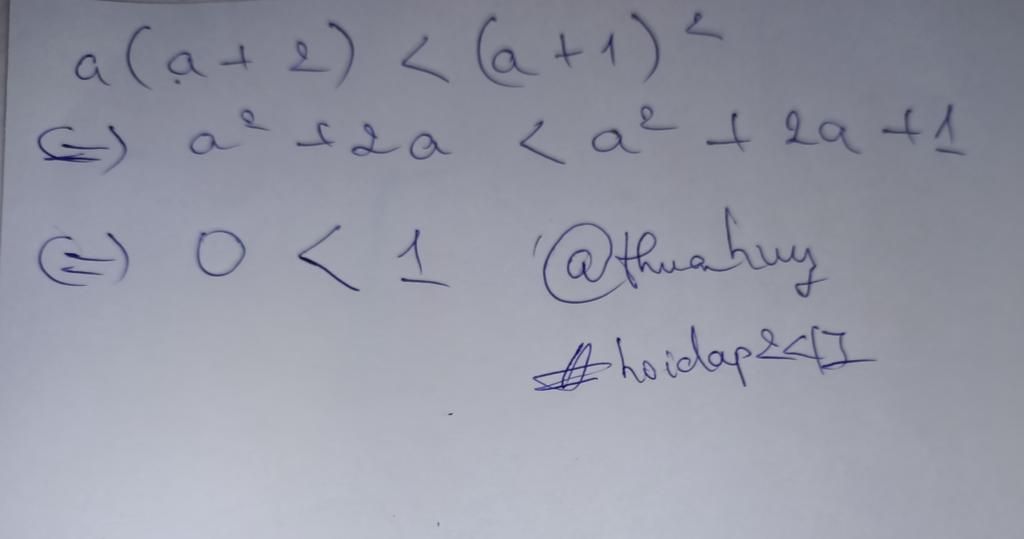 a(a+2) < (a+1)²
<=> a² + 2a < a² + 2a + 1
<=> 0 < 1 @thuahuy
#hoidap247